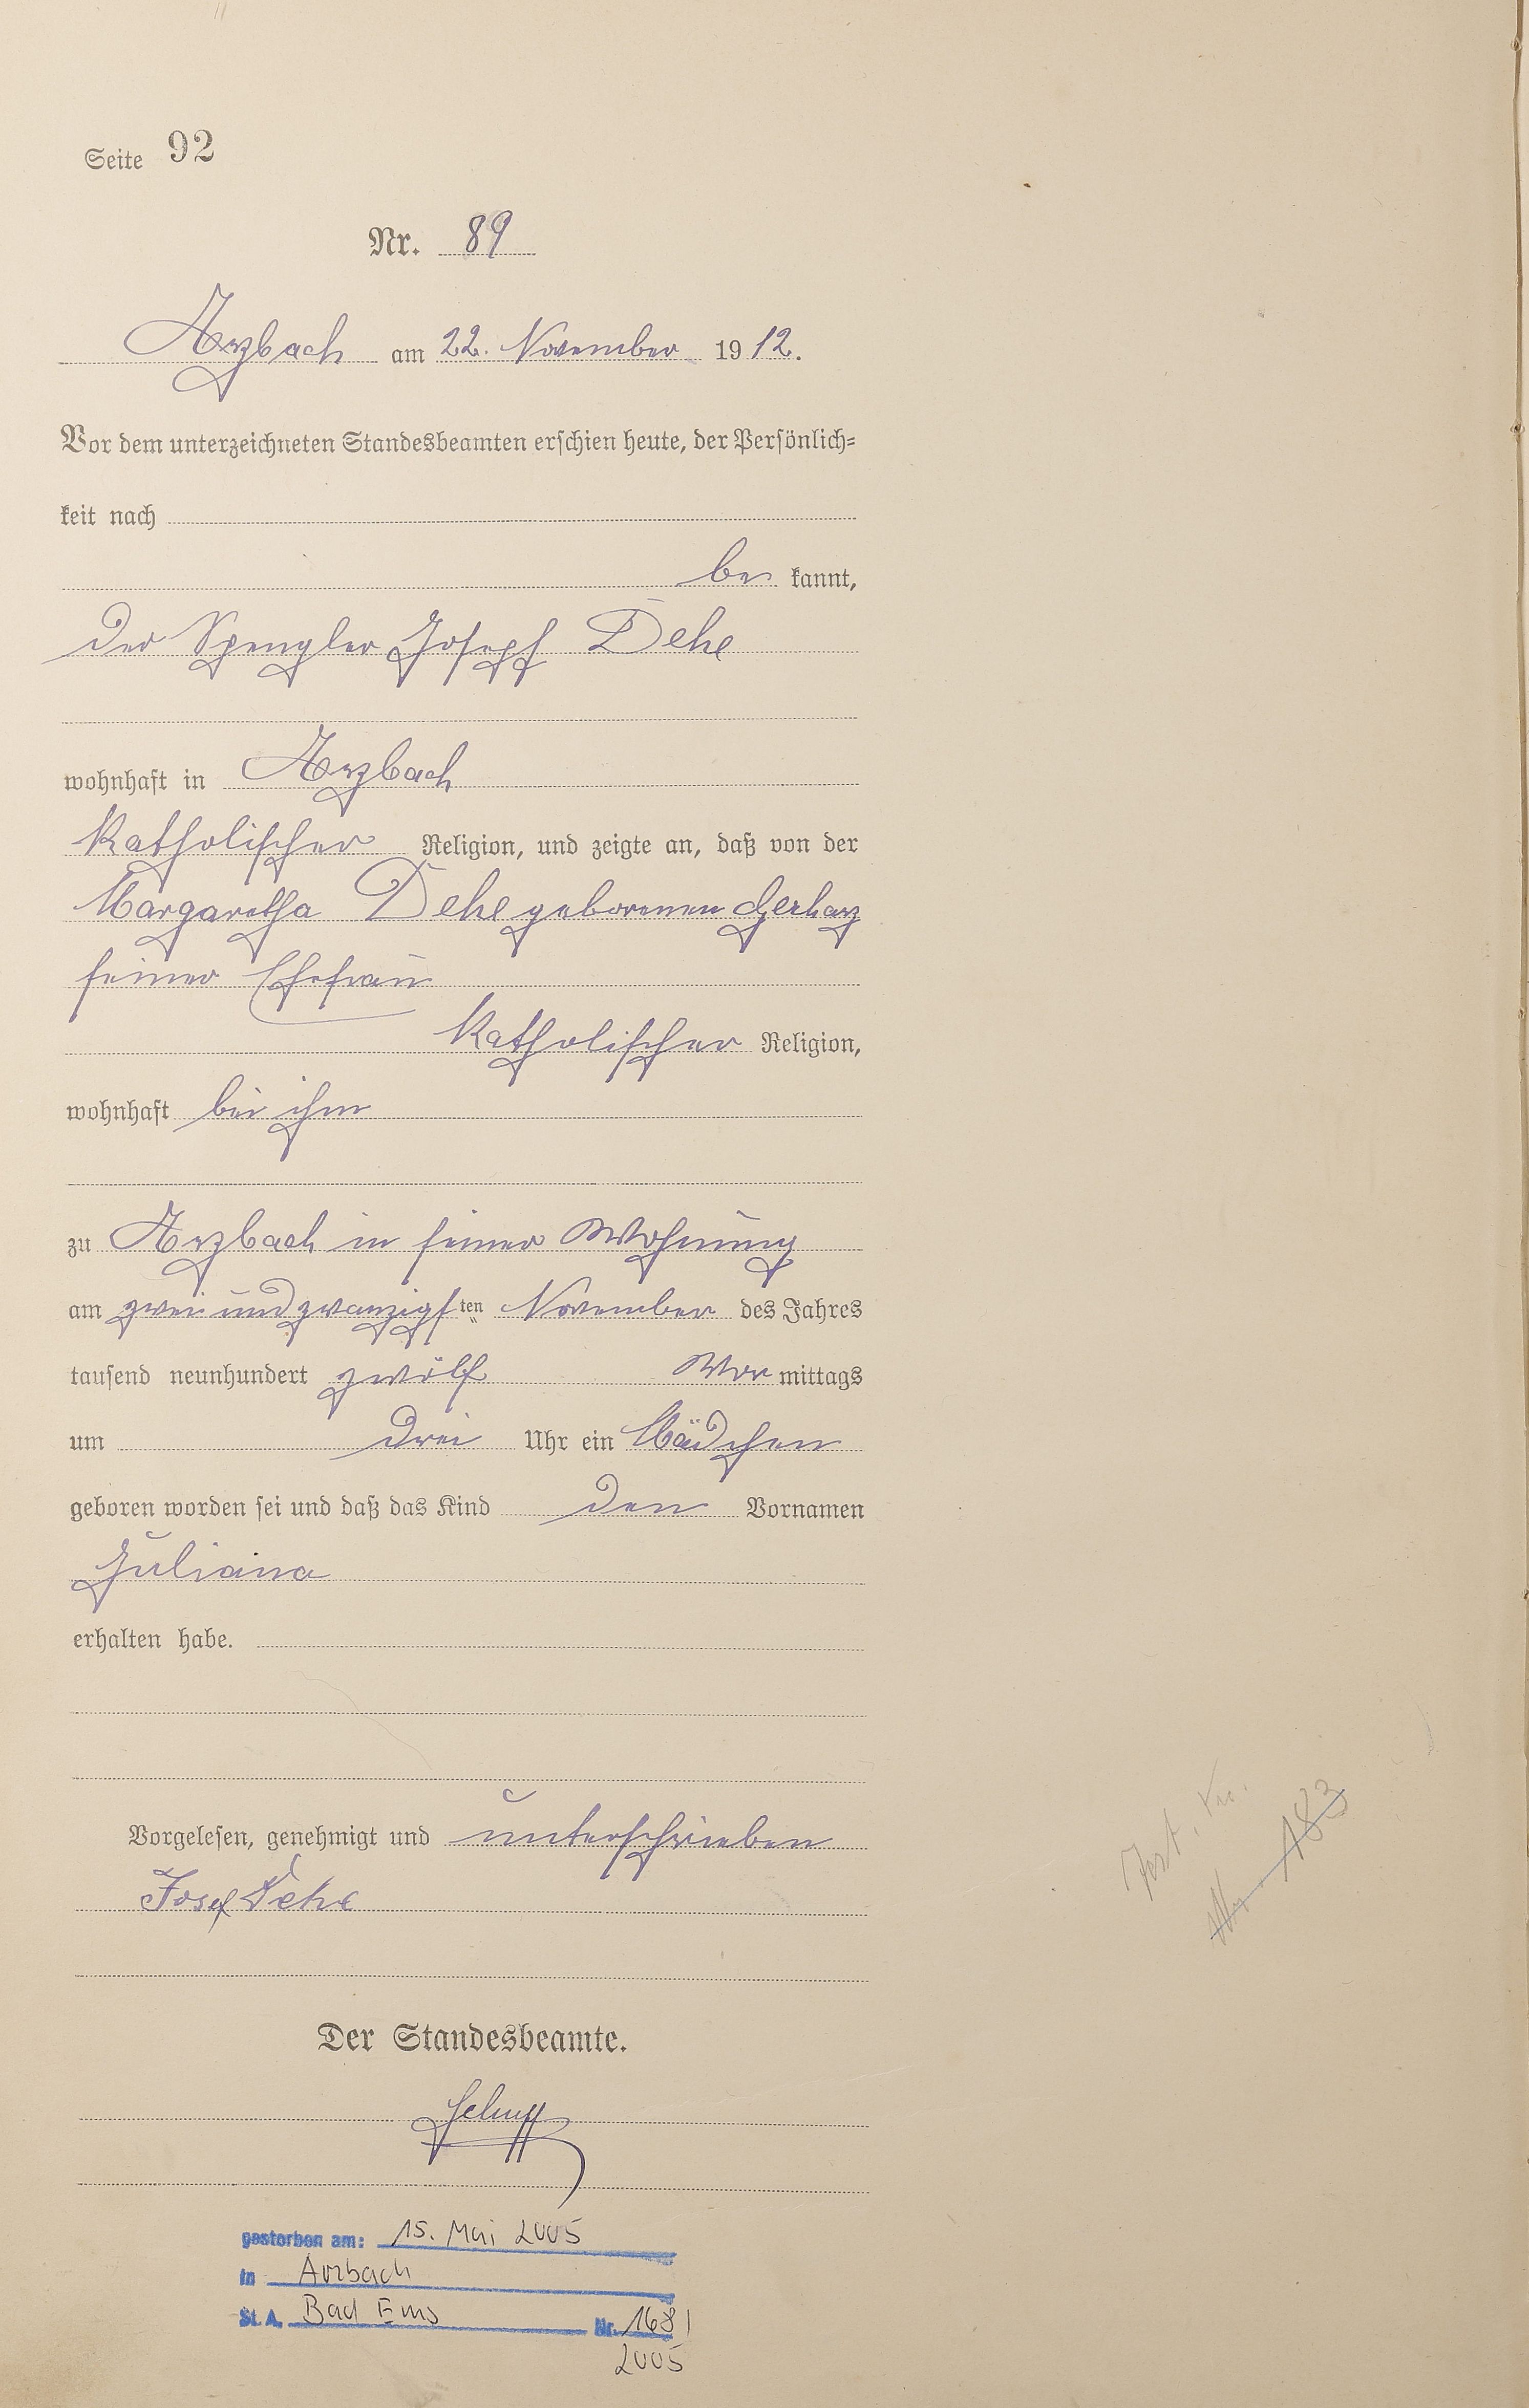 Seite 92
Nr. 89
Arzbach am 22. November 1912.
Vor dem unterzeichneten Standesbeamten erschien heute, der Persönlich=
keit nach
be kannt,
der Spengler Joseph Dehe
wohnhaft in Arzbach
katholischer Religion, und zeigte an, daß von der
Margaretha Dehe geborenen Gerharz
seiner Ehefrau
katholischer Religion,
wohnhaft bei ihm
zu Arzbach in seiner Wohnung
am zwei und zwanzigsten November des Jahres
tausend neunhundert zwölf Vor mittags
um drei Uhr ein Mädchen
geboren worden sei und daß das Kind den Vornamen
Juliana
erhalten habe.
Vorgelesen, genehmigt und unterschrieben
Josef Dehe
Der Standesbeamte.
gestorben am: 15. Mai 2005
in Arzbach
St. A. Bad Ems Nr. 168/
2005
Nr. 183